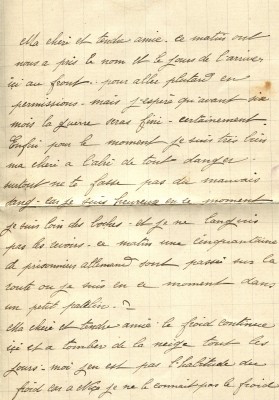 Ma cheri et tendre amie. ce matin ont
nous a pris le nom et le jours de l'arriver
ici au front. pour aller plutard en
permissions. mais j'espère qu'avant six
mois la guerre seras fini. certainement
Enfin pour le moment je suis très loin
ma cheri a l'abri de tout danger.
surtout ne te fasse pas du mauvais
sang. car je suis heureux en ce moment
je suis loin des boches. et je ne languis
pas les revoirs. ce matin une cinquantaine
de prisonniers allemand sont passé sur la
route ou je suis en ce moment dans
un petit patelin.
Ma cheri et tendre amie. le froid continue
ici et a tomber de la neige tout les
jours. moi j'en est pas l'habitude du
froid car a je ne le connait pas le froid